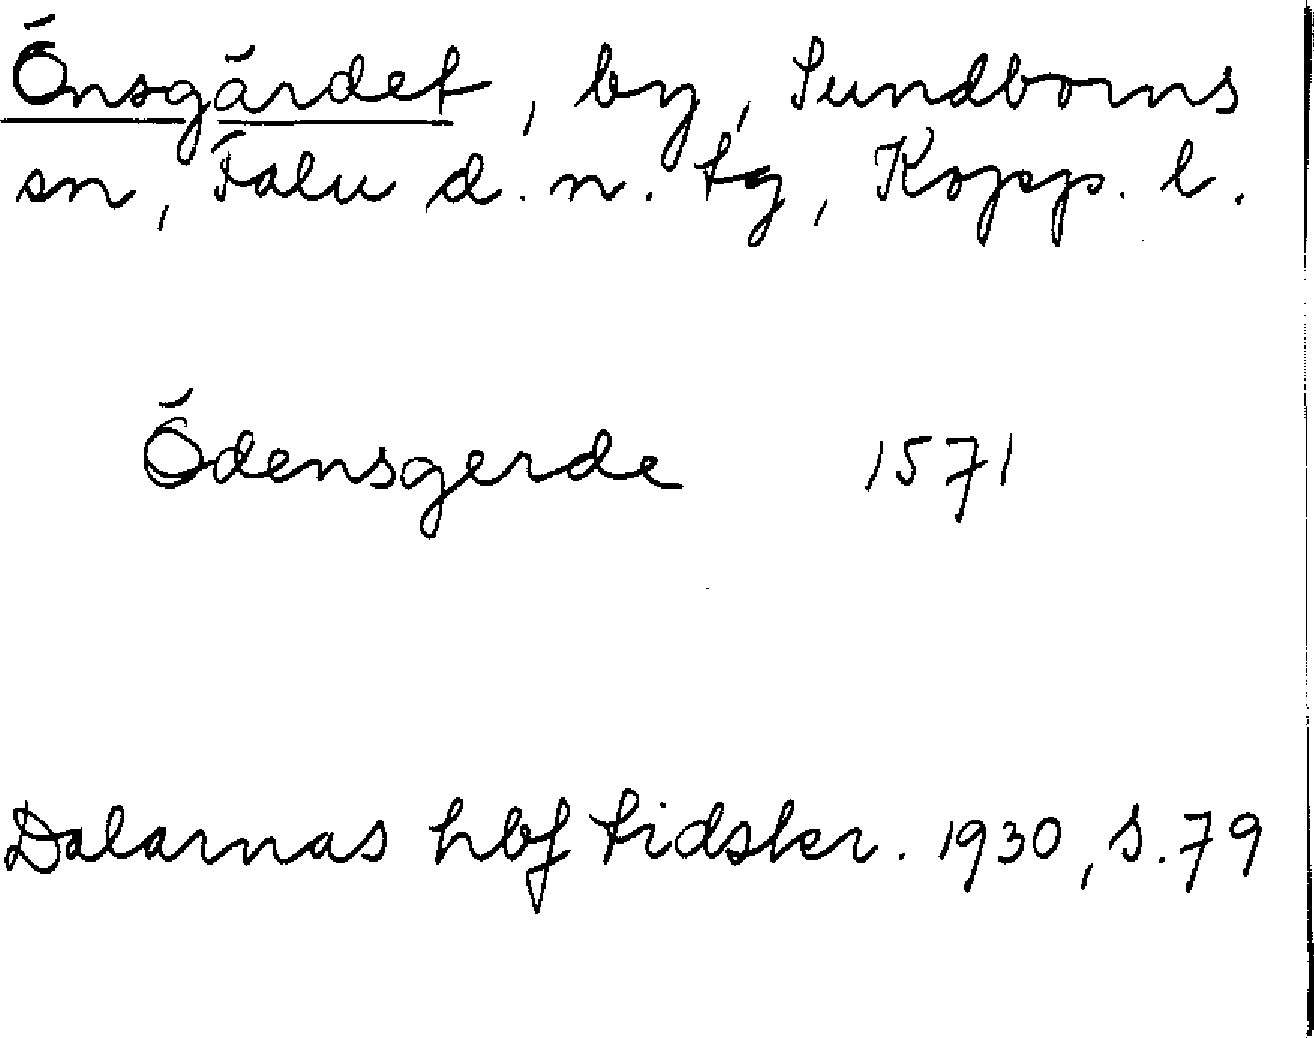 Önsgärdet, by, Sundborns
sn, Falu d. n. tg, Kopp. l.
Ödensgerde 1571
Dalarnas hbf tidskr. 1930, s. 79